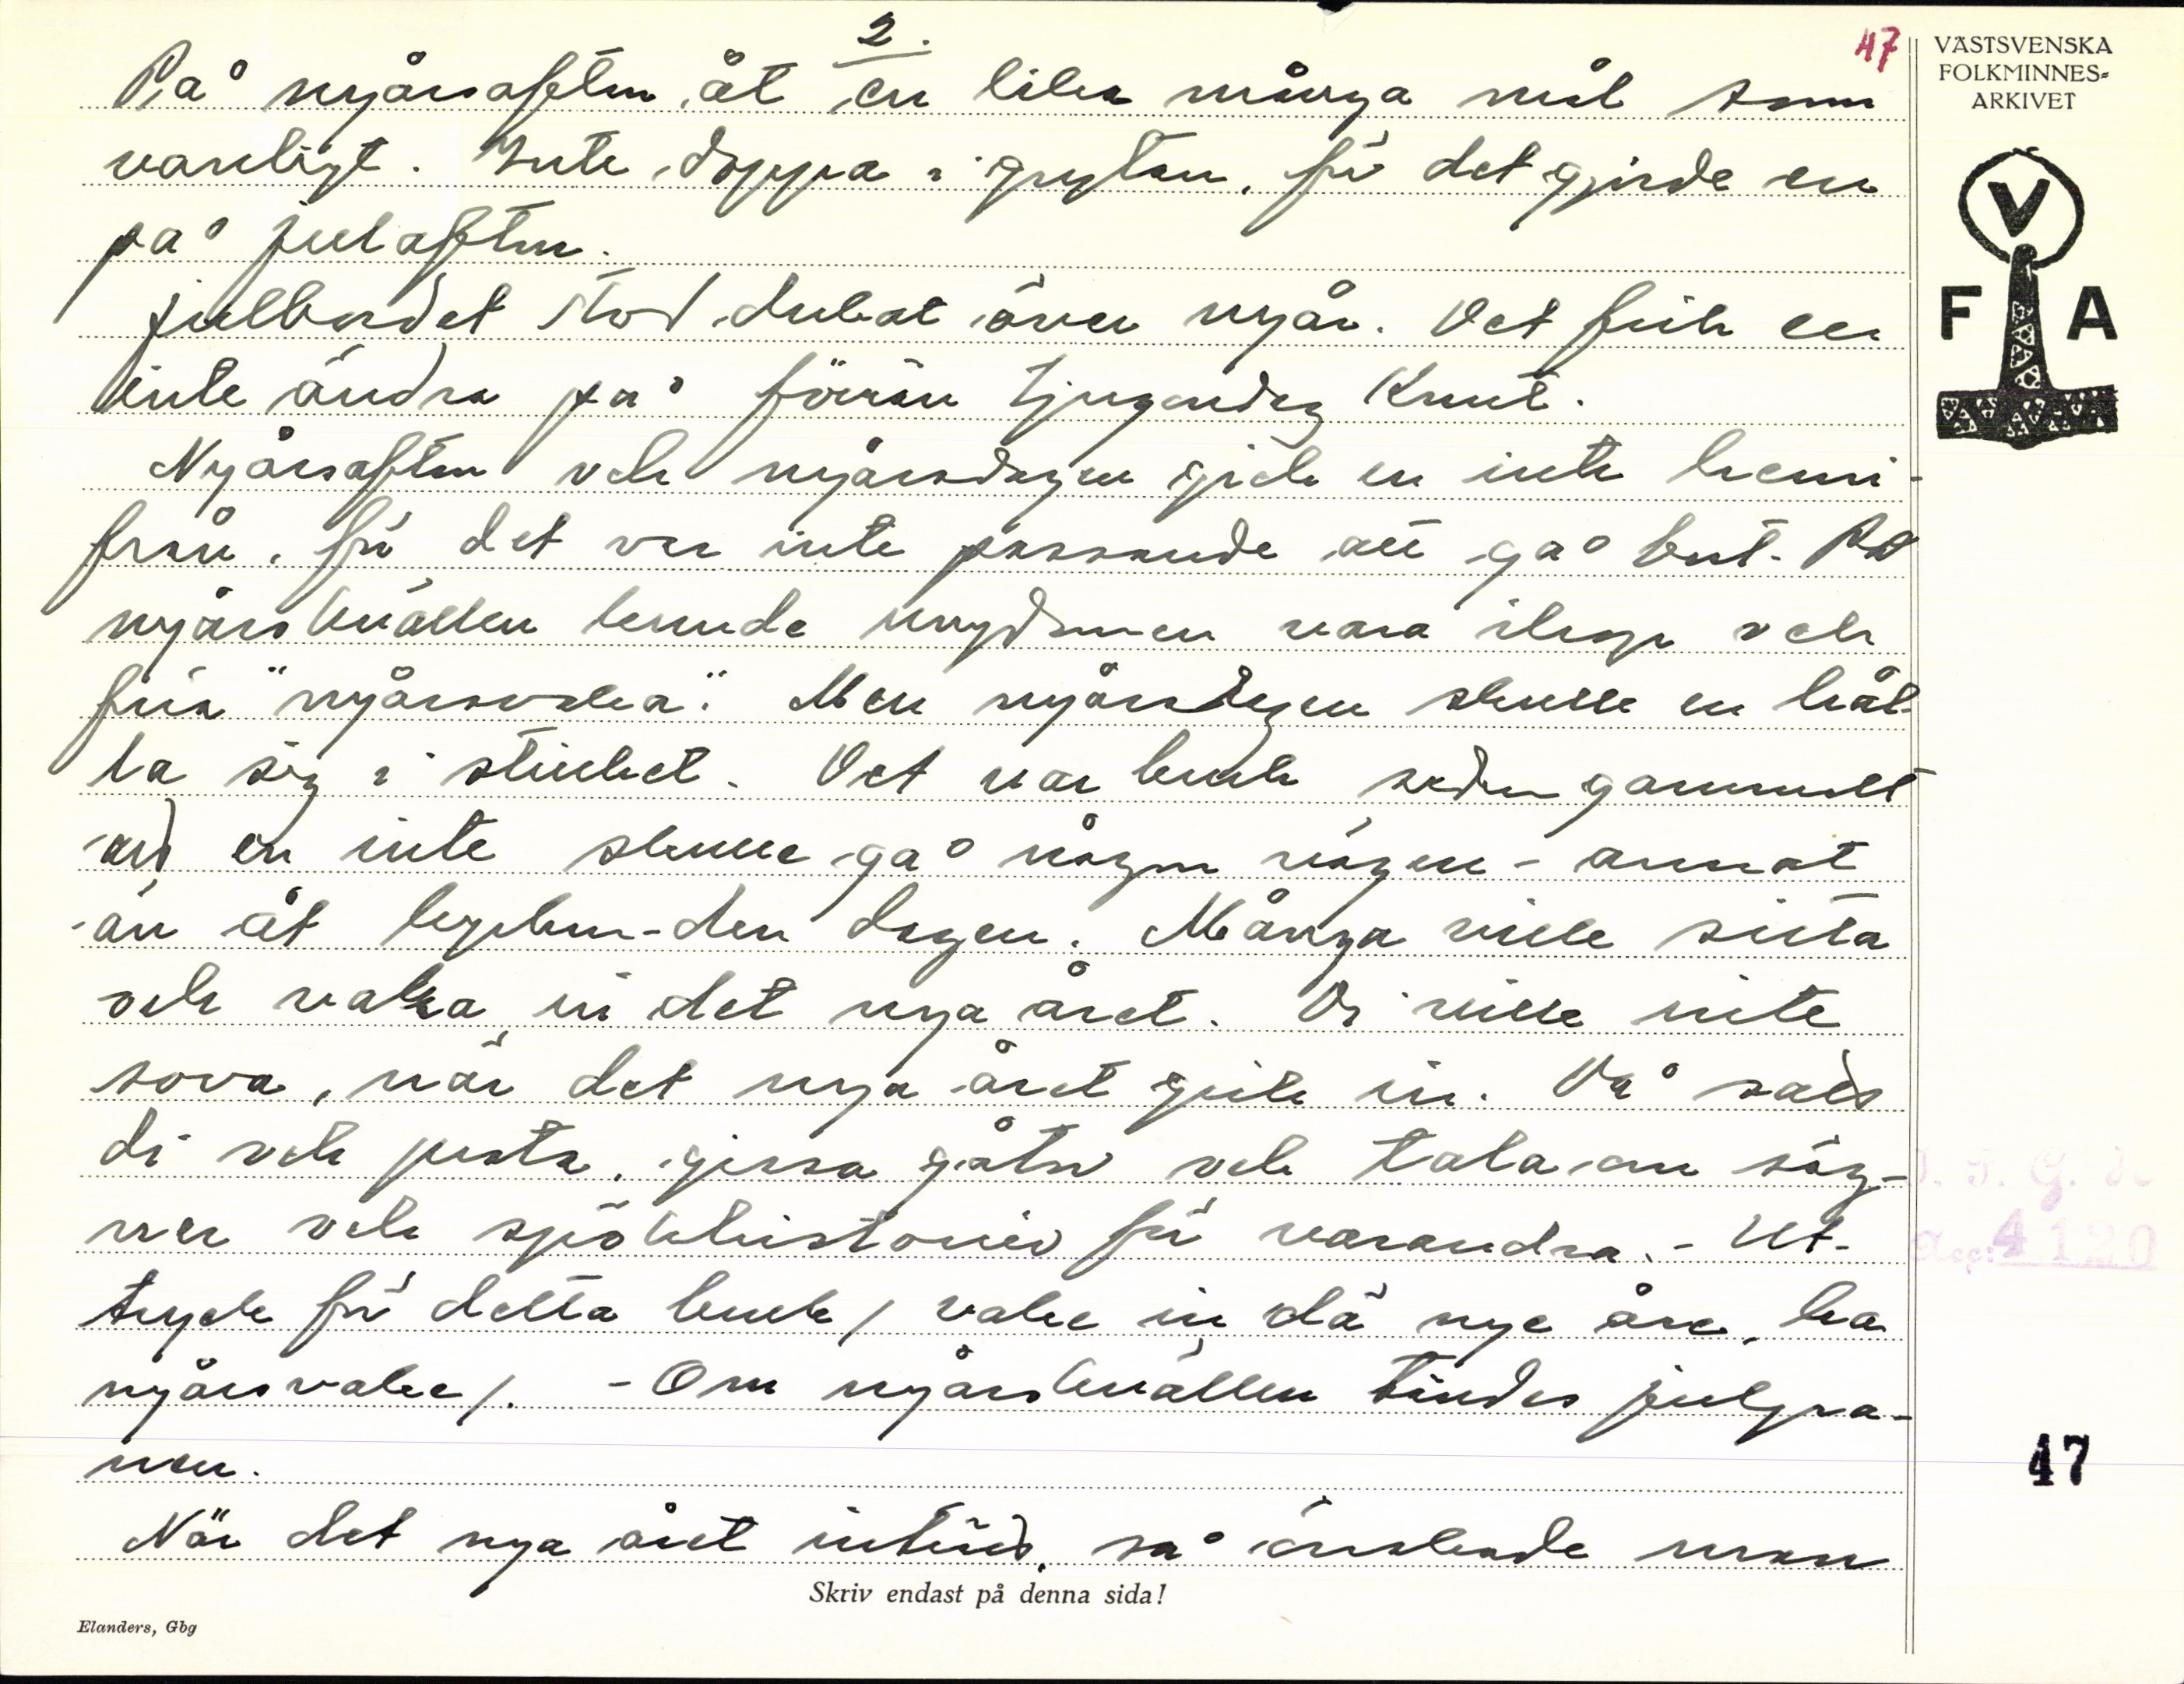 2.
47
VÄSTSVENSKA
FOLKMINNES=
ARKIVET
V
F A
På nyårsafton åt en lika många mål som
vanligt. Inte doppa i grytan, för det gjorde en
på julafton.
Julbordet stod dukat över nyår. Det fick en
inte ändra på förrän tjugondag Knut.
Nyårsafton och nyårsdagen gick en inte hemi-
från, för det var inte passande att gå bort. På
nyårskvällen kunde ungdomen vara ihop och
fira "nyårsvaka". Men nyårsdagen skulle en hål-
la sig i stillhet. Det var bruk sedan gammalt
att en inte skulle gå någon vägen - annat
än åt kyrkan - den dagen. Många ville sitta
och vaka in det nya året. Di ville inte
sova, när det nya året gick in. Då satt
di och prata, gissa gåtor och tala om säg-
ner och spökhistorier för varandra. - Ut-
tryck för detta bruk / vake in dä nye åre, ha
nyårsvake /. - Om nyårskvällen tändes julgra-
nen.
När det nya året inträdt, så önskade man
Skriv endast på denna sida!
Elanders, Gbg
I. F. G. 
Acc: 4120
47